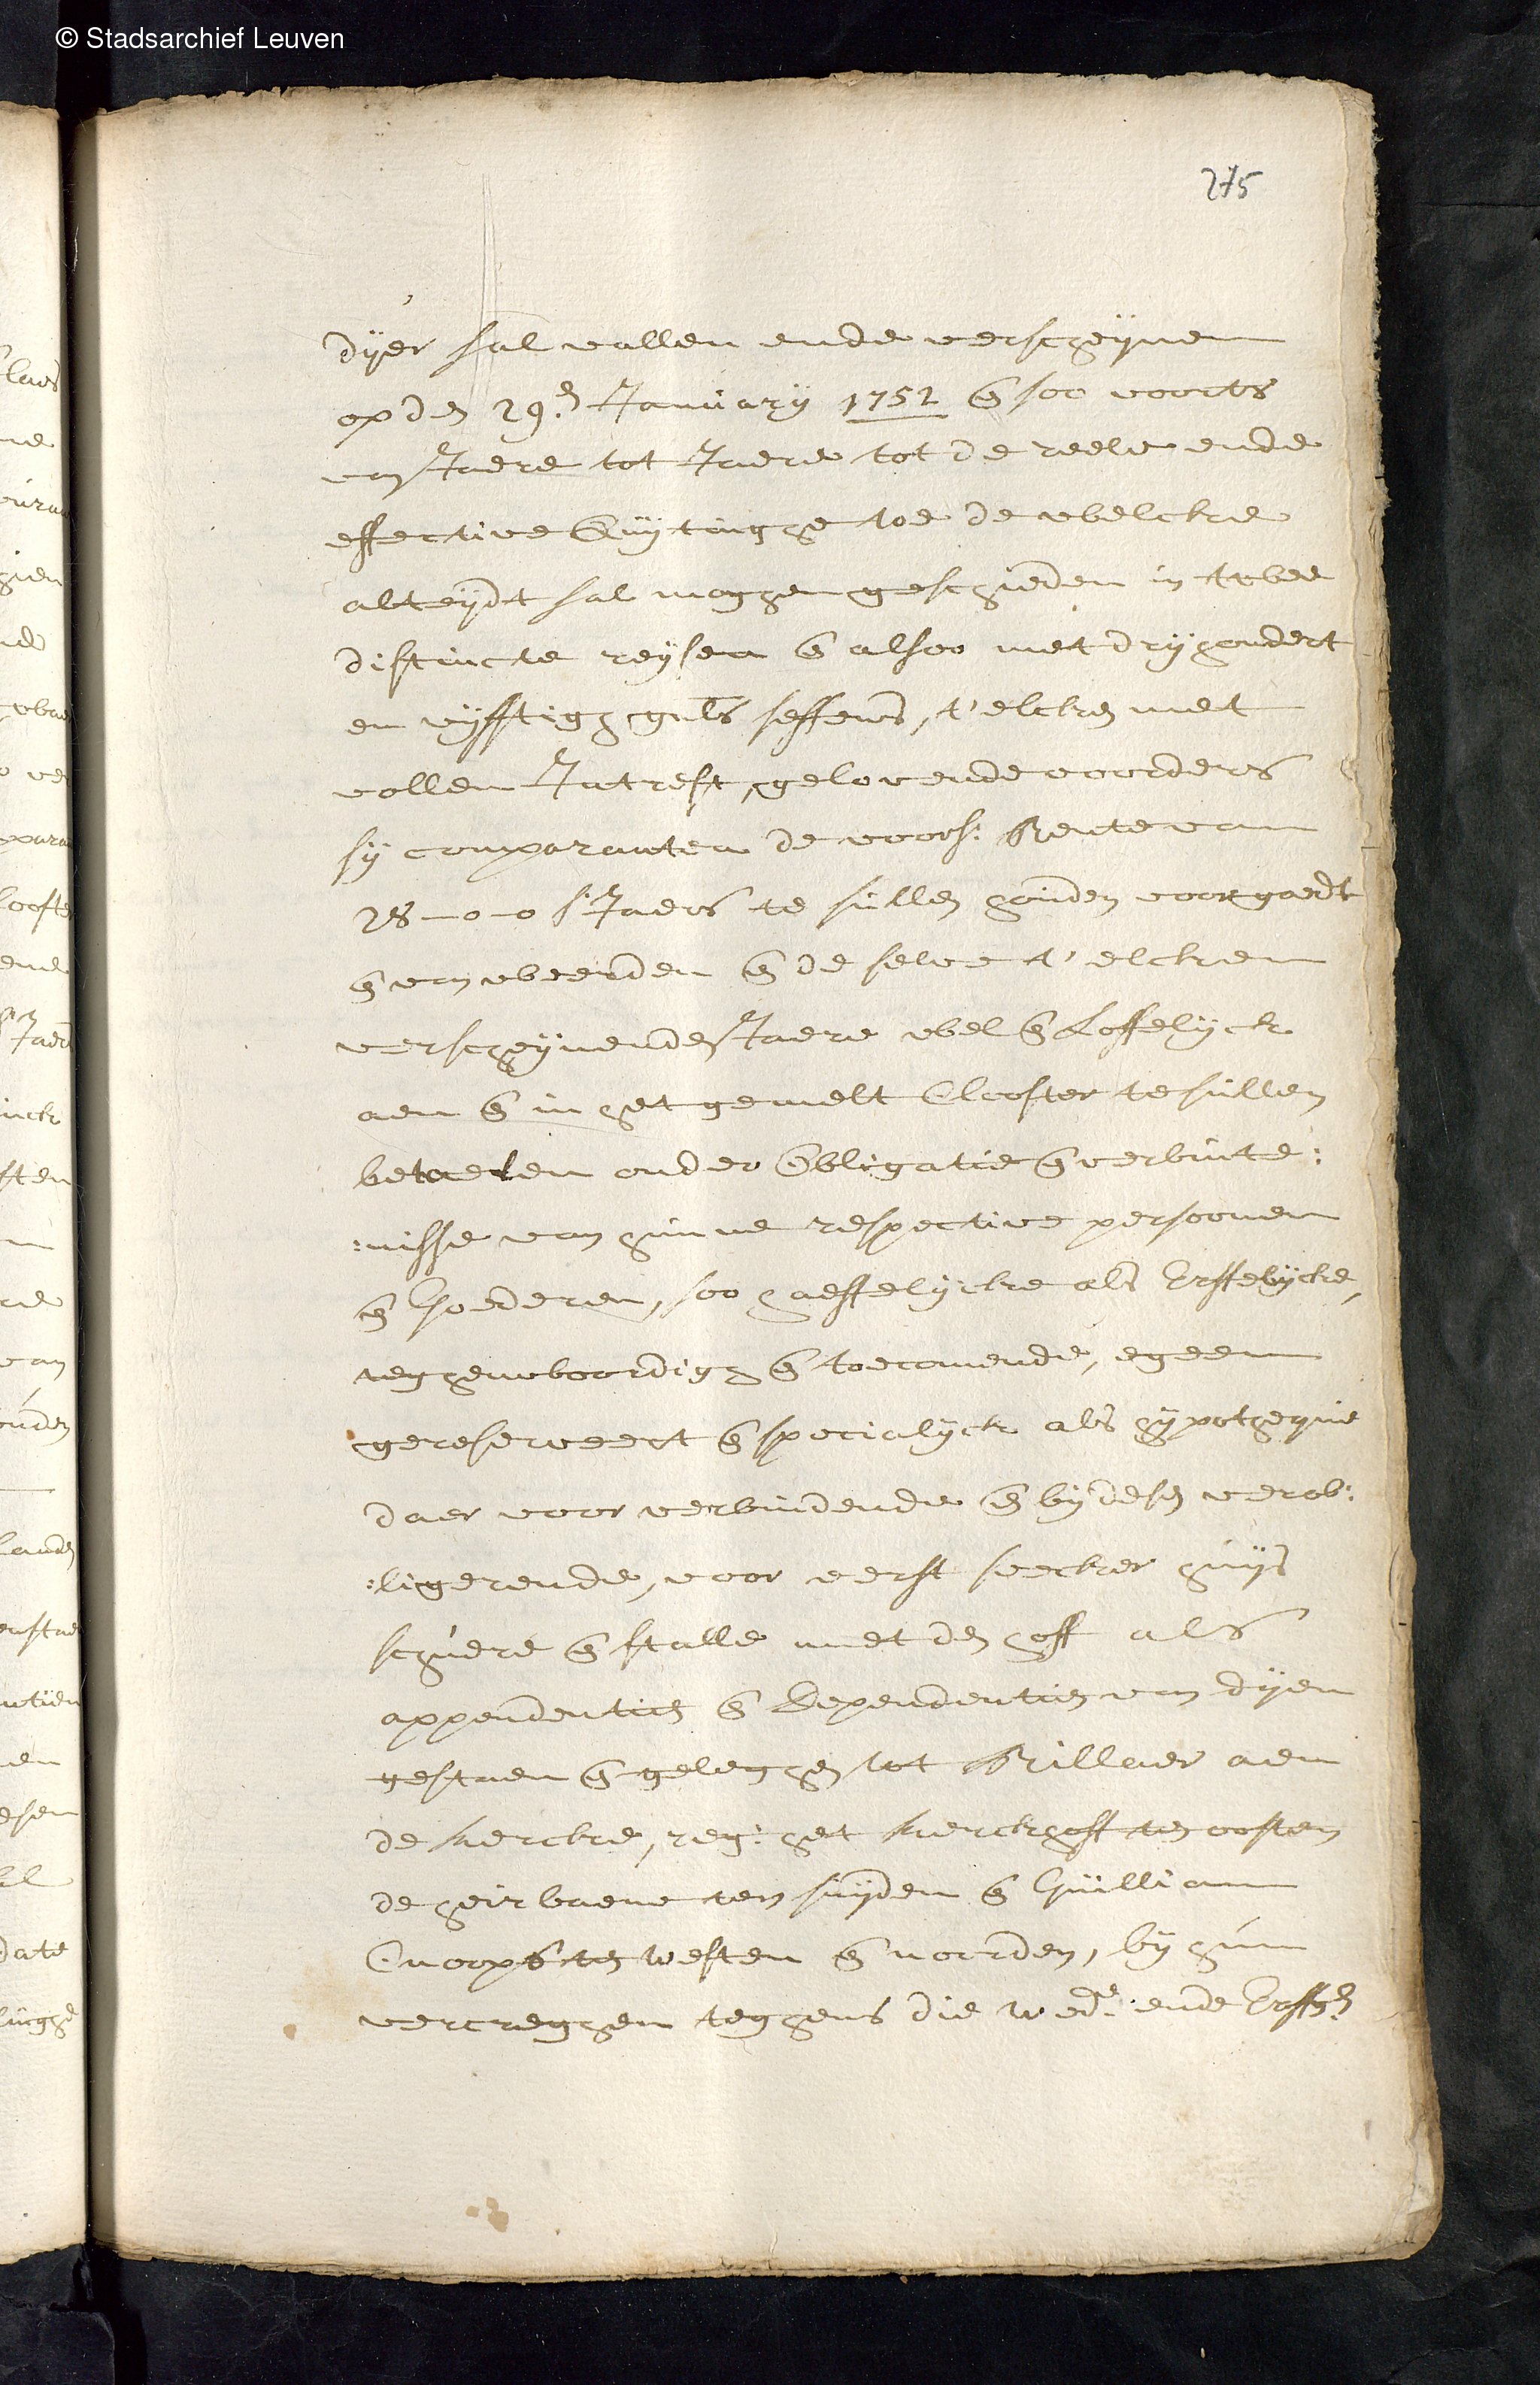 © Stadsarchief Leuven
275
dyer sal vallen ende verscheynen
op den 29.en January 1752 en soo voorts
van Jaere tot Jaere tot de reele ende
effective quytinghe toe de welcke
alteydt sal moghen geschieden in twee
distincte reysen en alsoo met dryhondert
en vyfftigh guls seffens, t'elcken met
vollen Intrest, gelovende voorders
sy comparanten de voors: Rente van
28-0-0 s'Jaers te sullen houden voorgaedt
en van weerden en de selve t'elcken
verscheynenden Jaere wel en Loffelyck
aen en in het gemelt Clooster te sullen
betaelen onder obligatie en verbinte:
:nisse van hunne respective persoonen
en Goederen, soo haeffelycke als Erffelycke,
teghenwoordigh en toecomende, egeen
gereserveert en specialyck als hypotheque
daer voor verbindende en by desen verob:
:ligerende, voor eerst seecker huys
schuere en stalle met den hoff als
appendentien en Dependentien van dyen
gestaen en geleghen tot Rillaer aen
de kercke, reg: het kerckhoff ten oosten
de heirbaene ten suyden en Guilliam
Cnoops ten westen en noorden, by hun
vercreghen teghens die Wed.e ende Erffg.en